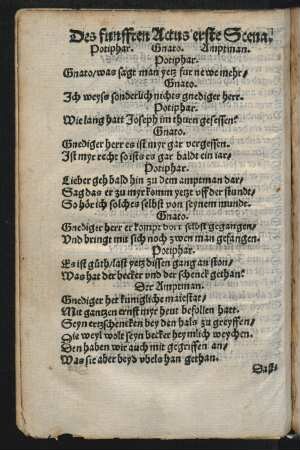 Des funfften Actus erste Scena.
Potiphar. Gnato. Amptman.
Potiphar.
Gnato/was sagt man yetz fur newe mehr/
Gnato.
Ich weyß sonderlich nichts gnediger herr.
Potiphar.
Wie lang hatt Joseph im thurn gesessen?
Gnato.
Gnediger herr es ist myr gar vergessen.
Ist myr recht so ists es gar baldt ein iar/
Potiphar.
Lieber geh bald hin zu dem amptman dar/
Sag das er zu myr komm yetzt uff der stundt/
So hör ich solches selbst von seynem munde.
Gnato.
Gnediger herr er kompt dort selbst gegangen/
Vnd bringt mit sich noch zwen man gefangen.
Potiphar.
Es ist gůth/last yetz dissen gang an ston/
Was hat der becker vnd der schenck gethan?
Der Amptman.
Gnediger her künigliche maiestat/
Mit gantzen ernst myr heut befollen hatt.
Seyn ertzschencken bey den hals zu greyffen/
Die weyl wolt seyn becker heymlich weychen.
Den haben wir auch mit gegriffen an/
Was sie aber beyd vbels han gethan.
Das-